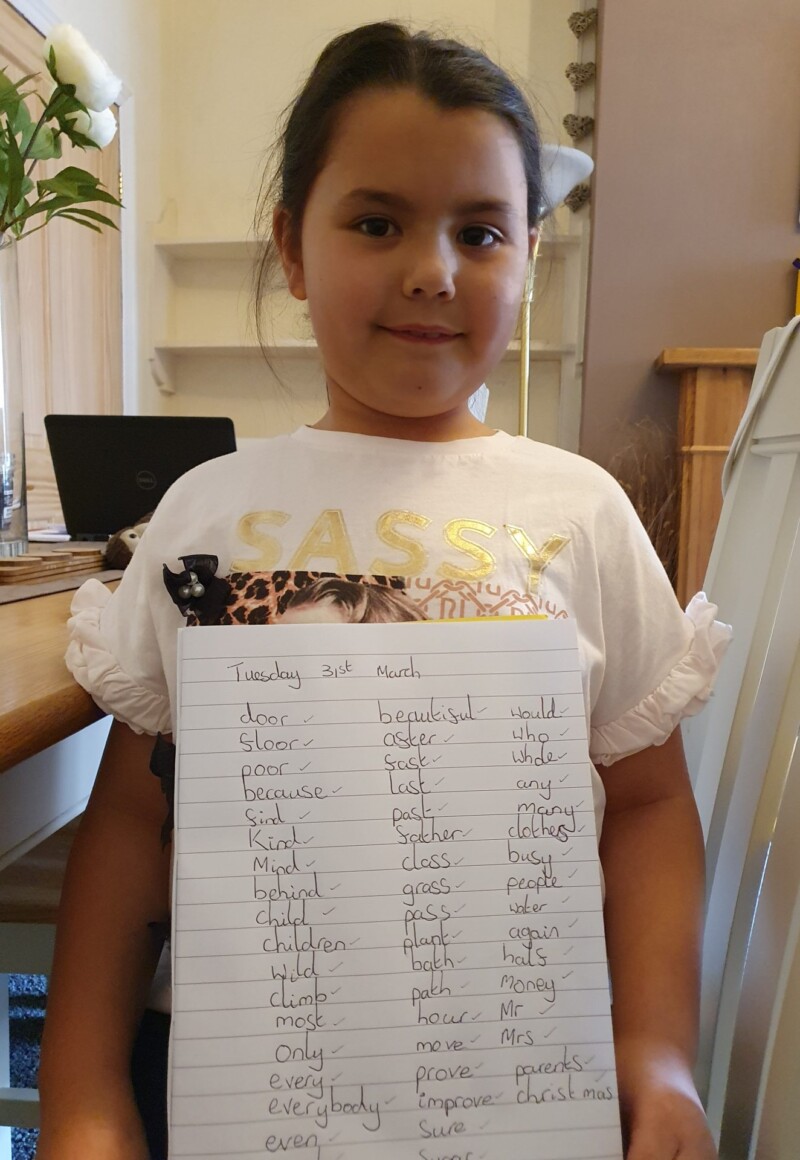 SASSY
Tuesday 31st March
door
floor
poor
because
find
Kind
Mind
behind
child
children
Wild
climb
most
Only
every
everybody
even
beautiful
after
fast
last
past
father
class
grass
pass
plant
bath
path
hour
move
prove
improve
Sure
Sugar
would
who
whole
any
many
clothes
busy
people
water
again
half
Money
Mr
Mrs
parents
christmas
DELL